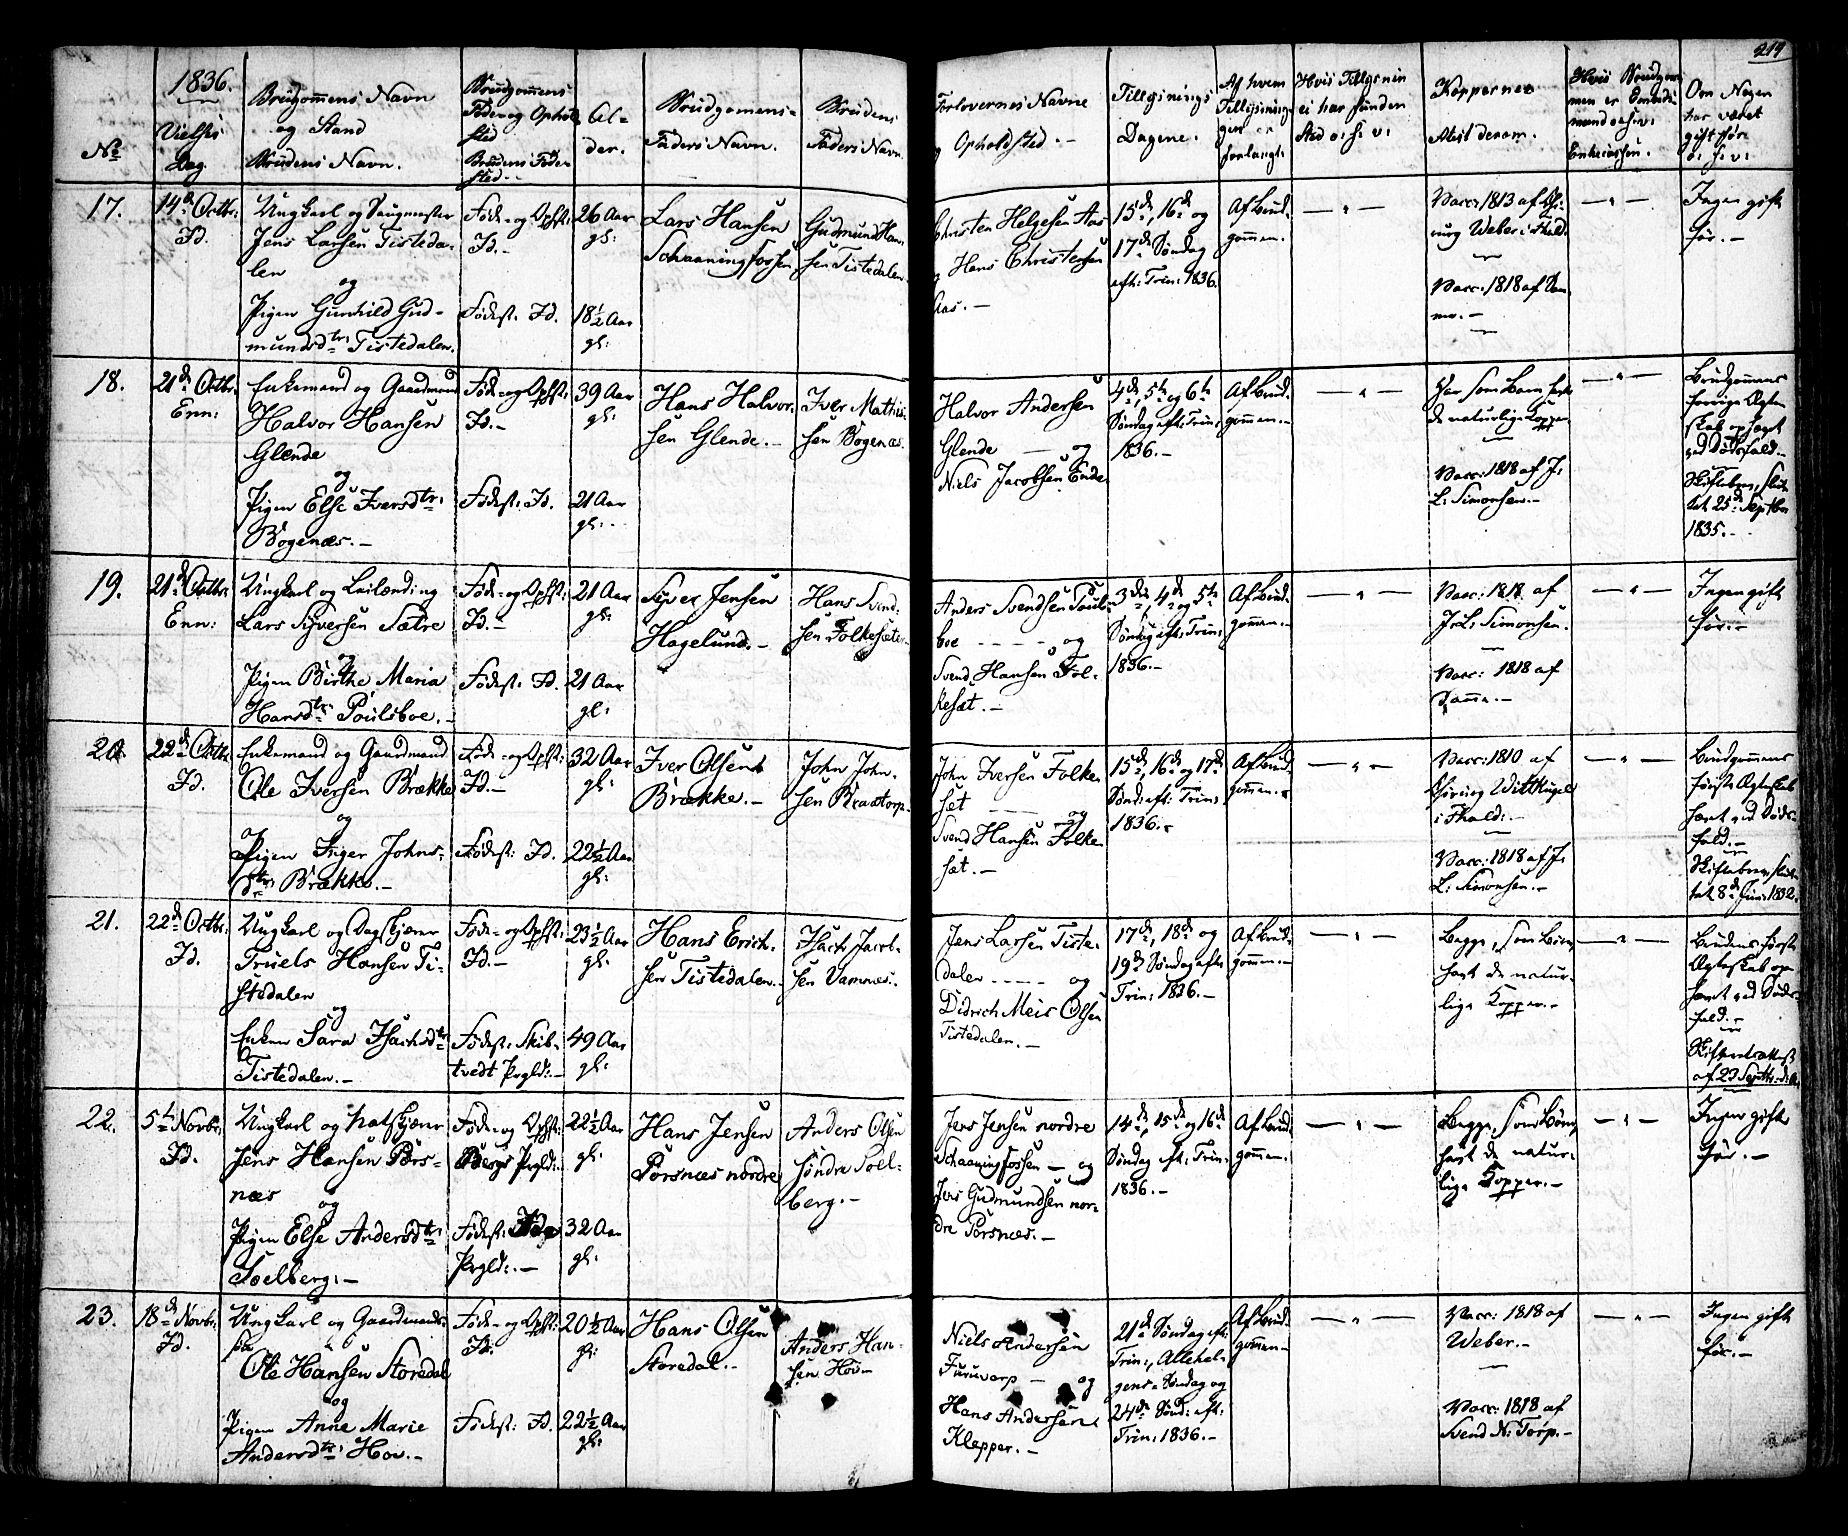 219
1836.
No
Vielses Dag.
Brudgommens Navn
og Stand
Brudens Navn.
Brudgommens
Føde- og Opholds
sted
Brudens Føde-
sted.
Al-
der.
Brudgomens
Faders Navn.
Brudens
Faders Navn.
Forlovernes Navne
og Opholdsted.
Tillysnings
Dagene.
Af hvem
Tillysnin-
gen er
forlangt.
Hvis Tillysnin
ei har funden
Sted o: s: v:
Kopperne
Attest derom.
Om Nogen
har været
gift før
o: s: v:
17.
14de Octbr:
Id.
Ungkarl og Saugmester
Jens Larsen Tisteda-
len
og
Pigen Gunhild Gud-
mundsdtr: Tistedalen.
Føde- og Opst:
Id.-
Fødest: Id.
26 Aar
gl:
18½ Aar
gl:
Lars Hansen
Schaaningfossen
Gudmund Han-
sen Tistedalen
Christen Helgesen Aas
og Hans Christensen
Aas.-
15de, 16de og
17de Søndag
efth: Trin: 1836.
Af Brud-
gommen.
Vacc: 1813 af Chi-
rurg Weber i Fhald.
Vacc: 1818 af Dam-
me.-
Ingen gift
før.-
18.
21de Octbr:
Enn:
Enkemand og Gaardmand
Halvor Hansen
Glende
og
Pigen Else Iversdtr:
Bogenæs.-
Føde- og Opst:
Id.-
Fødest: Id.
39 Aar
gl:
21 Aar
gl:
Hans Halvor-
sen Glende.-
Iver Mathis-
sen Bogenæs.
Halvor Andersen
Glende og
Niels Jacobsen Ende
4de, 5te og 6te
Søndag efth: Trin:
1836.-
Af Brud-
gommen.-
Har som Barn havt
de naturlige Kopper.
Vacc: 1818 af J:
L: Simonsen.-
Brudgommens
forrige Ægte-
skab ophævet
ved Dødsfald.-
Skiftebrev, slut-
tet 25de Septbr
1835.-
19.
21de Octbr:
Enn:
Ungkarl og Leilænding
Lars Syversen Sætre
og
Pigen Birthe Maria
Hansdtr: Poulsboe.-
Føde- og Opst:
Id.-
Fødest: Id.
21 Aar
gl:
21 Aar
gl:
Syver Jensen
Hagelund.-
Hans Svend-
sen Folkesæter
Anders Svendsen Pouls-
boe og
Svend Hansen Fol-
kesæt.-
3die, 4de og 5te
Søndag efth: Trin:
1836.-
Af Brud-
gommen.-
Vacc: 1818 af
J: L: Simonsen.
Vacc: 1818 af
Damme.-
Ingen gift
før.-
20.
22de Octbr:
Id.
Enkemand og Gaardmand
Ole Iversen Brække
og
Pigen Inger Johns-
dtr: Brække.-
Føde- og Opst:
Id.-
Fødest: Id.
32 Aar
gl:
22½ Aar
gl:
Iver Olsen
Brække.-
John John-
sen Braatorp.
John Iversen Folke-
sæt og
Svend Hansen Folke-
sæt.-
15de, 16de og 17de
Sønd: efth: Trin:
1836.-
Af Brud-
gommen.-
Vacc: 1810 af
Chirurg Wittkugel
i Fhald:-
Vacc: 1818 af J:
L: Simonsen.-
Brudgommens
første Ægteskab
hævet ved Døds-
fald.-
Skiftebrev, slut-
tet 8de Juni 1832.
21.
22de Octbr:
Id.
Ungkarl og Dagskjønr
Truels Hansen Ti-
stedalen
og
Enken Sara Isachsdtr
Tistedalen.-
Føde- og Opst:
Id.-
Fødest: Skib-
tvedt Prgld:-
23½ Aar
gl:
49 Aar
gl:
Hans Erich-
sen Tistedalen.
Isach Jacob-
sen Vamnes.
Jens Larsen Tiste-
dalen og
Didrich Meis Olsen
Tistedalen.-
17de, 18de og
19de Søndag efth:
Trin: 1836.-
Af Brud-
gommen.-
Begge, som Børn,
havt de natur-
lige Kopper.-
Brudens første
Ægteskab op-
hævet ved Døds-
fald.-
af 23 Septbr: d: A.
22.
5te Novbr:
Id.
Jens Hansen Pors-
næs
og
Pigen Else Andersdtr:
Soelberg.-
Føde- og Opst:
Bergs Prgld:-
Fødest: Ids
Prgld:.-
22½ Aar
gl:
32 Aar
gl:
Hans Jensen
Porsnæs nordre
Anders Olsen
søndre Soel-
berg.-
Jens Jensen nordre
Schaaningfossen - og
Jens Gudmundsen nor-
dre Porsnæs.-
14de, 15de og 16de
Søndag efth: Trin:
1836.-
Af Brud-
gommen.
Begge, som Børn,
havt de natur-
lige Kopper.-
Ingen gift
før.-
23.
18de Novbr:
Id.
Ungkarl og Gaardmands-
søn
Ole Hansen Storedal
og
Pigen Anne Marie
Andersdtr: Hov.-
Føde- og Opst:
Id:
Fødest: Id.
20½ Aar
gl:
22½ Aar
gl:
Hans Olsen
Storedal.-
Anders Han-
sen Hov-
Niels Andersen
Furuvarp - og
Hans Andersen
Klepper.-
21de Søndag efth:
Trin:, Allehel-
gens Søndag og
24de Sønd: efth:
Trin: 1836.-
Af Brud-
gommen-
Vacc: 1818 af
Weber.-
Vacc: 1818 af
Svend N: Torp.-
Ingen gift
før.-